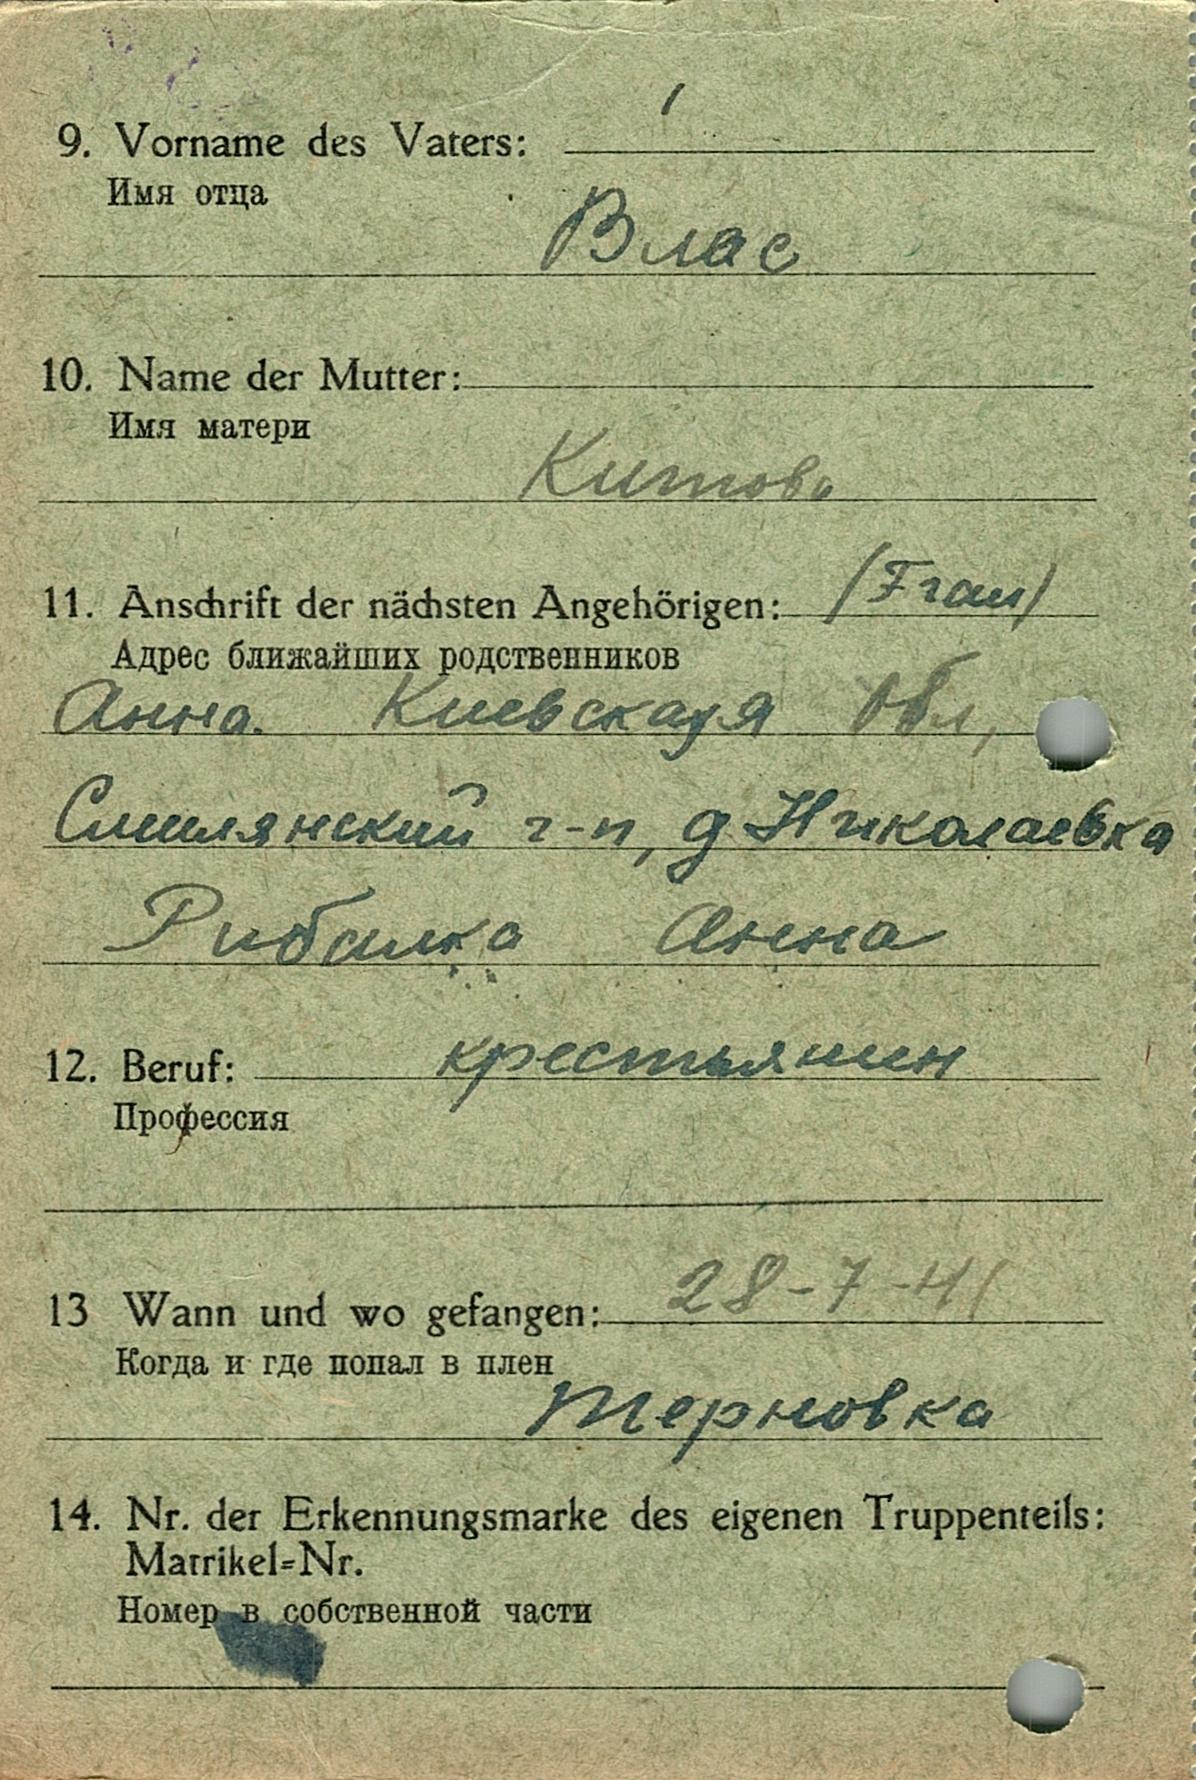 9. Vorname des Vaters:
Имя отца
Влас
10. Name der Mutter:
Имя матери
Китова
11. Anschrift der nächsten Angehörigen: (Frau)
Адрес ближайших родственников
Анна. Киевская Обл,
Смилянский г-п, д. Николаевка
Рибалка Анна
12. Beruf: крестьянин
Профессия
13 Wann und wo gefangen: 28-7-41
Когда и где попал в плен
Терновка
14. Nr. der Erkennungsmarke des eigenen Truppenteils:
Matrikel=Nr.
Номер в собственной части